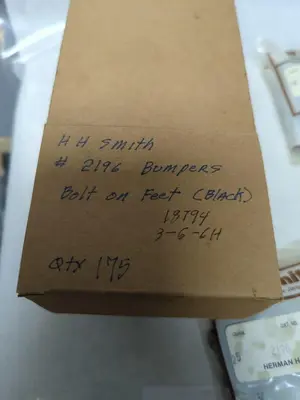 H H Smith
# 2196 Bumpers
Bolt on Feet (Black)
18794
3-6-6H
Qty 175
HERMAN H